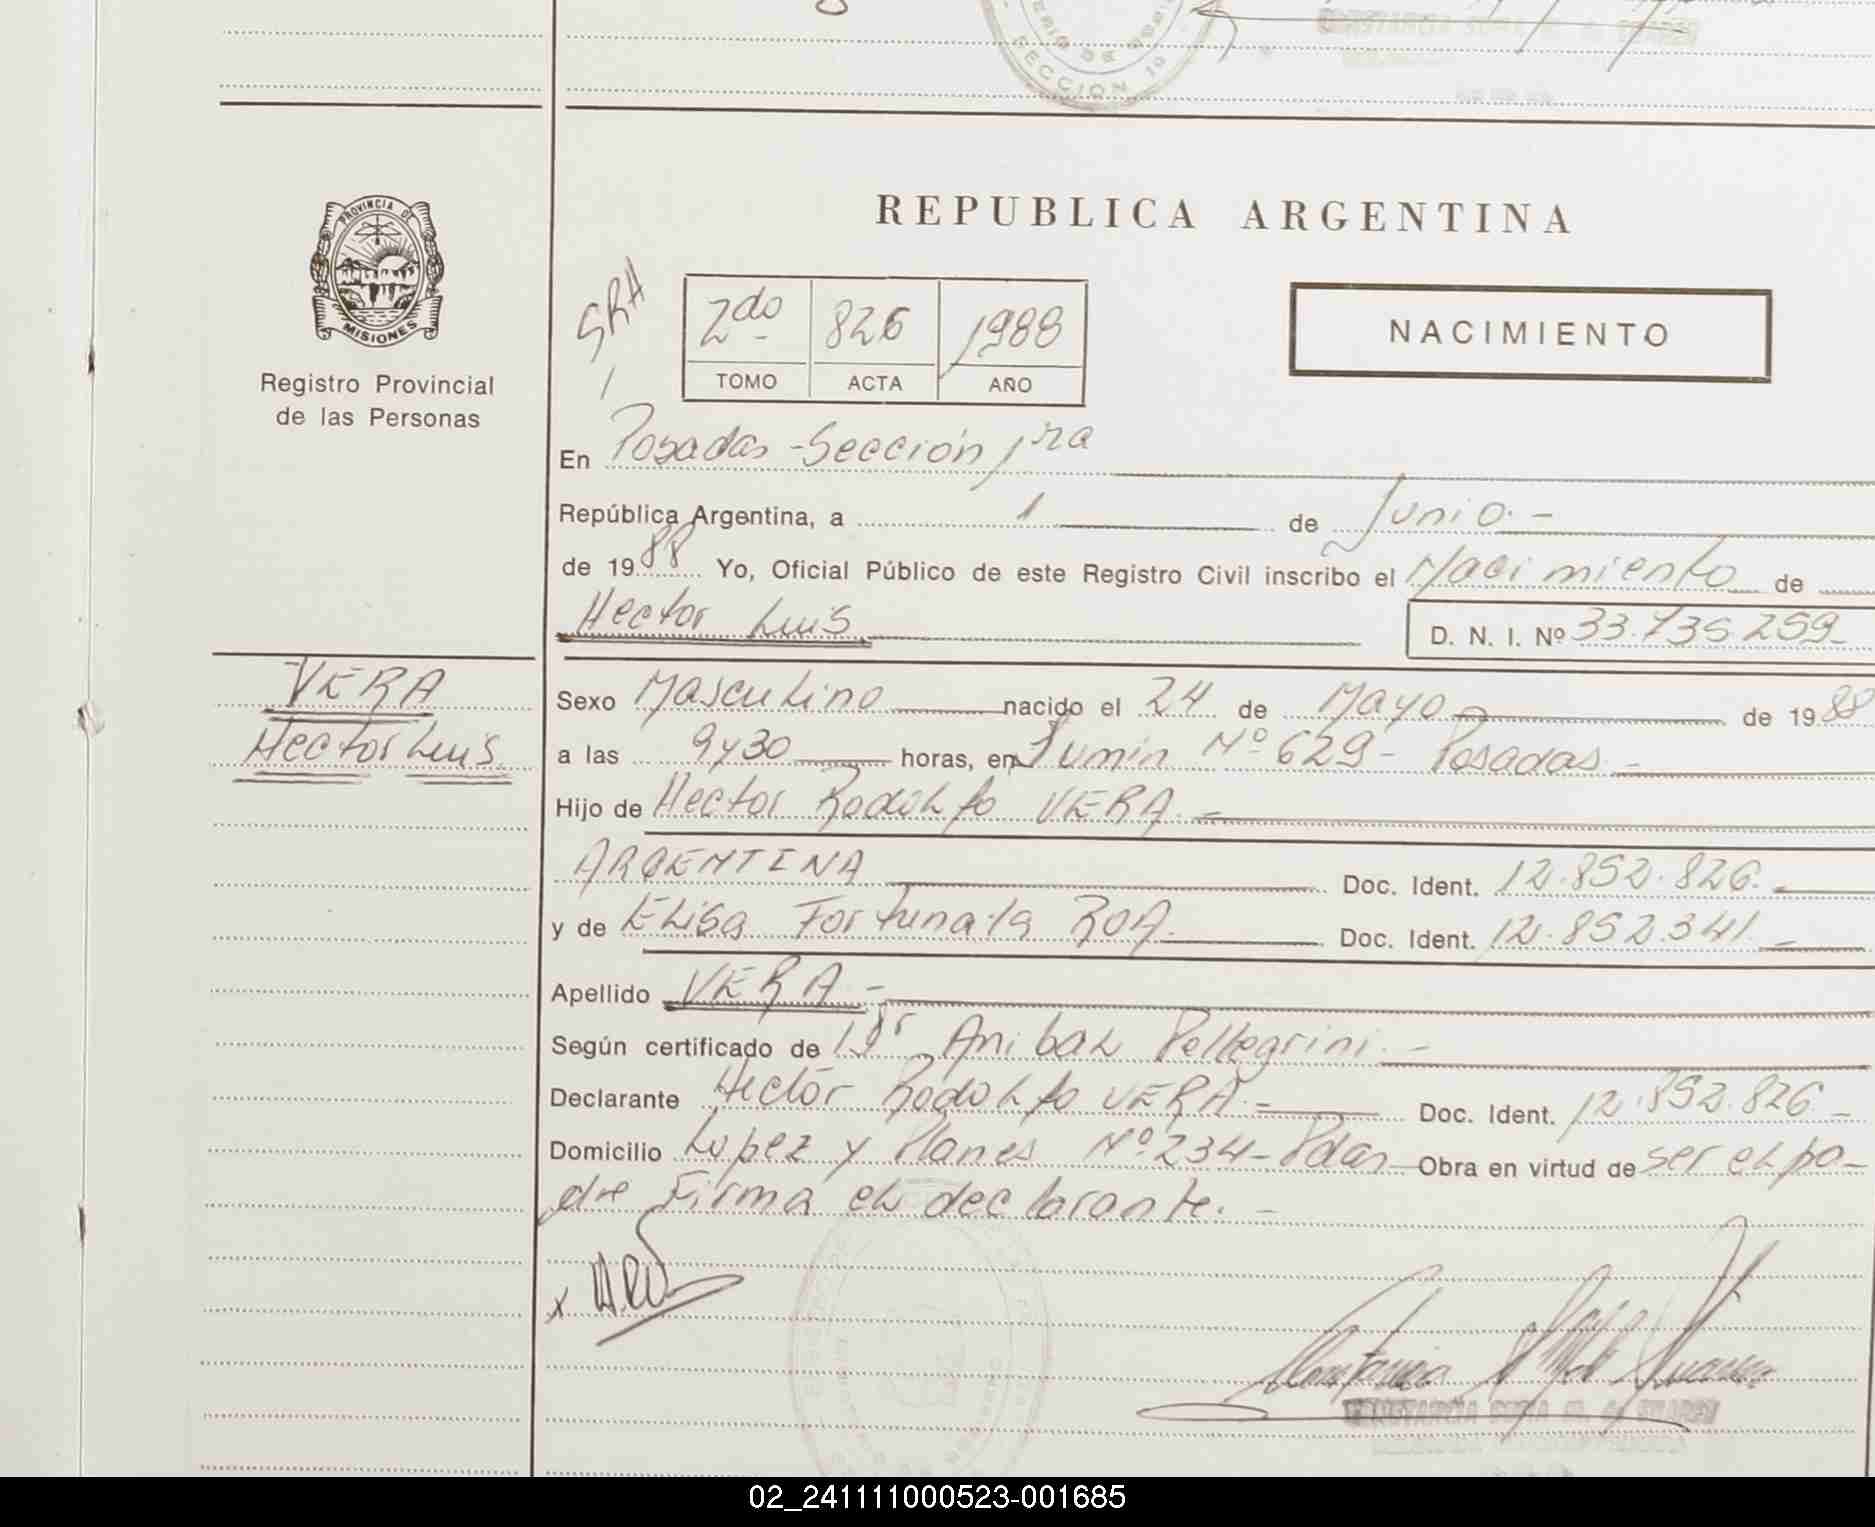 SECCION 1º
PROVINCIA DE
MISIONES
Registro Provincial
de las Personas
REPUBLICA ARGENTINA
SRA
2do - 826 1988
TOMO ACTA AÑO
NACIMIENTO
En Posadas - Sección 1ra
República Argentina, a 1 de Junio. -
de 1988 Yo, Oficial Público de este Registro Civil inscribo el Nacimiento de
Hector Luis D. N. I. Nº 33.735.259-
VERA
Hector Luis
Sexo Masculino nacido el 24 de Mayo de 1988
a las 9y30 horas, en Junin Nº 629 - Posadas. -
Hijo de Hector Rodolfo VERA. -
ARGENTINA Doc. Ident. 12.852.826. -
y de Elisa Fortunata ROA. Doc. Ident. 12.852.341. -
Apellido VERA -
Según certificado de Dr Anibal Pellegrini. -
Declarante Hector Rodolfo VERA - Doc. Ident. 12.852.826 -
Domicilio Lopez y Planes Nº 234 - Pdas Obra en virtud de ser el pa-
dre Firma el declarante. -
x
02_241111000523-001685